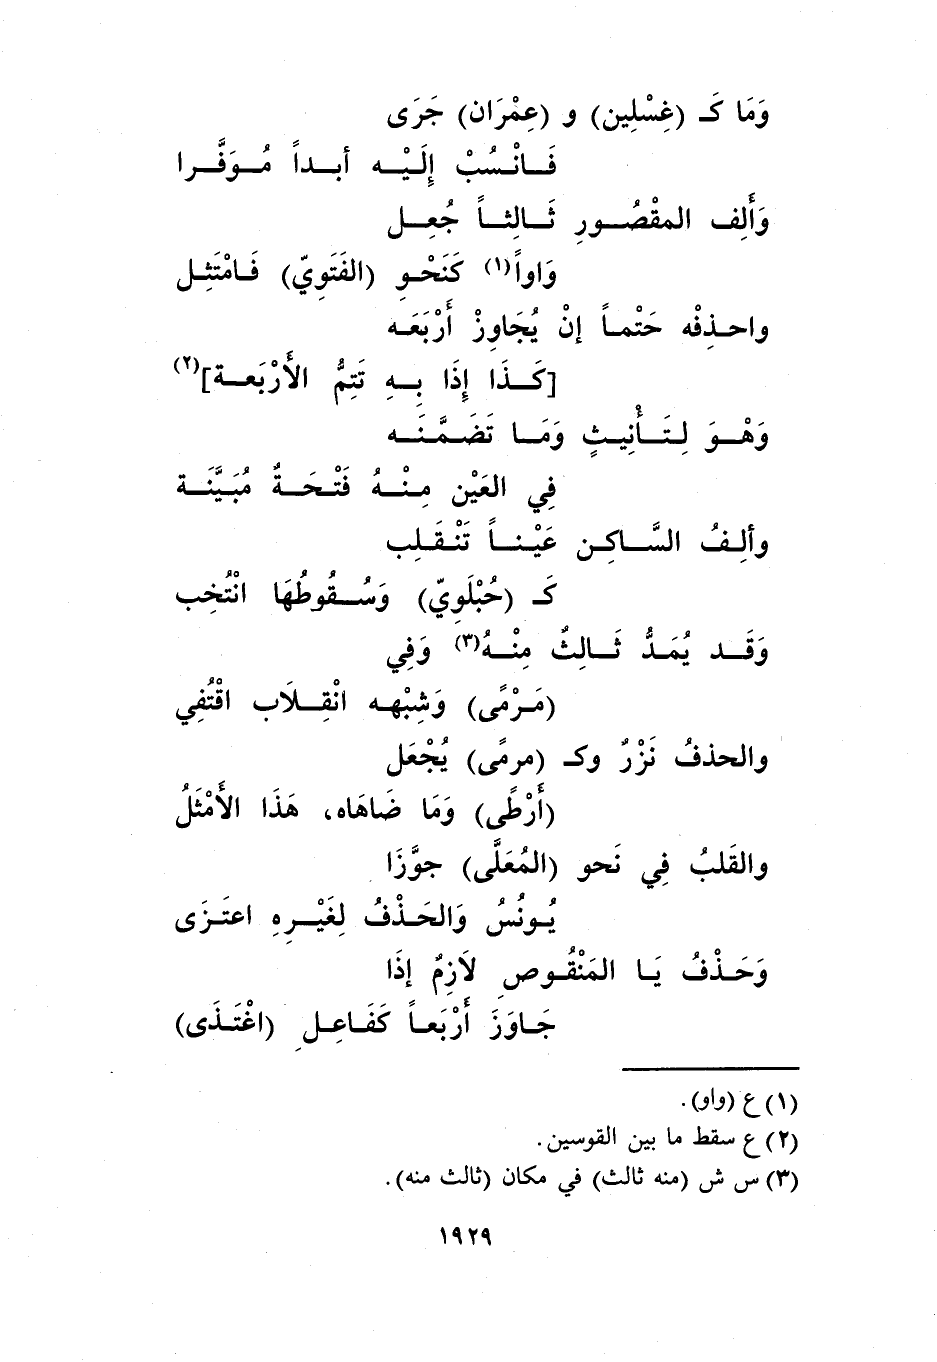 وَمَا كَـ (غِسْلِين) و (عِمْرَان) جَرَى
فَـانْـسُبْ إِلَـيْـه أبـداً مُـوَفَّـرا
وَأَلِف المقْصُـورِ ثَـالِثـاً جُعِـل
وَاواً(١) كَنَحْـوِ (الفَتَوِيّ) فَـامْتَثِـل
واحـذِفْه حَتْمـاً إنْ يُجَاوِزْ أَرْبَعَـه
[كَـذَا إِذَا بِـهِ تَتِمُّ الأَرْبَعـة](٢)
وَهْـوَ لِـتَـأْنِيـثٍ وَمَـا تَضَـمَّـنَـه
فِي العَيْن مِـنْـهُ فَتْـحَـةٌ مُبَيَّنَـة
وألِـفُ السَّـاكِـن عَيْـنـاً تَنْـقَـلِب
كَـ (حُبْلَوِيّ) وَسُـقُوطُهَا انْتُخِب
وَقَـد يُمَـدُّ ثَـالِثٌ مِنْـهُ(٣) وَفِي
(مَـرْمًى) وَشِبْهِـه انْقِـلَاب اقْتُفِي
والحذفُ نَزْرٌ وكـ (مرمًى) يُجْعَل
(أَرْطًى) وَمَا ضَاهَاه، هَذَا الأَمْثَلُ
والقَلبُ فِي نَحو (المُعَلَّى) جوَّزَا
يُـونُسُ وَالحَـذْفُ لِغَيْـرِهِ اعتَـزَى
وَحَـذْفُ يَـا المَنْقُـوصِ لَازِمٌ إذَا
جَـاوَزَ أَرْبَعـاً كَفَـاعِـلِ (اغْتَـذَى)
(١) ع (واو).
(٢) ع سقط ما بين القوسين.
(٣) س ش (منه ثالث) في مكان (ثالث منه).
١٩٢٩